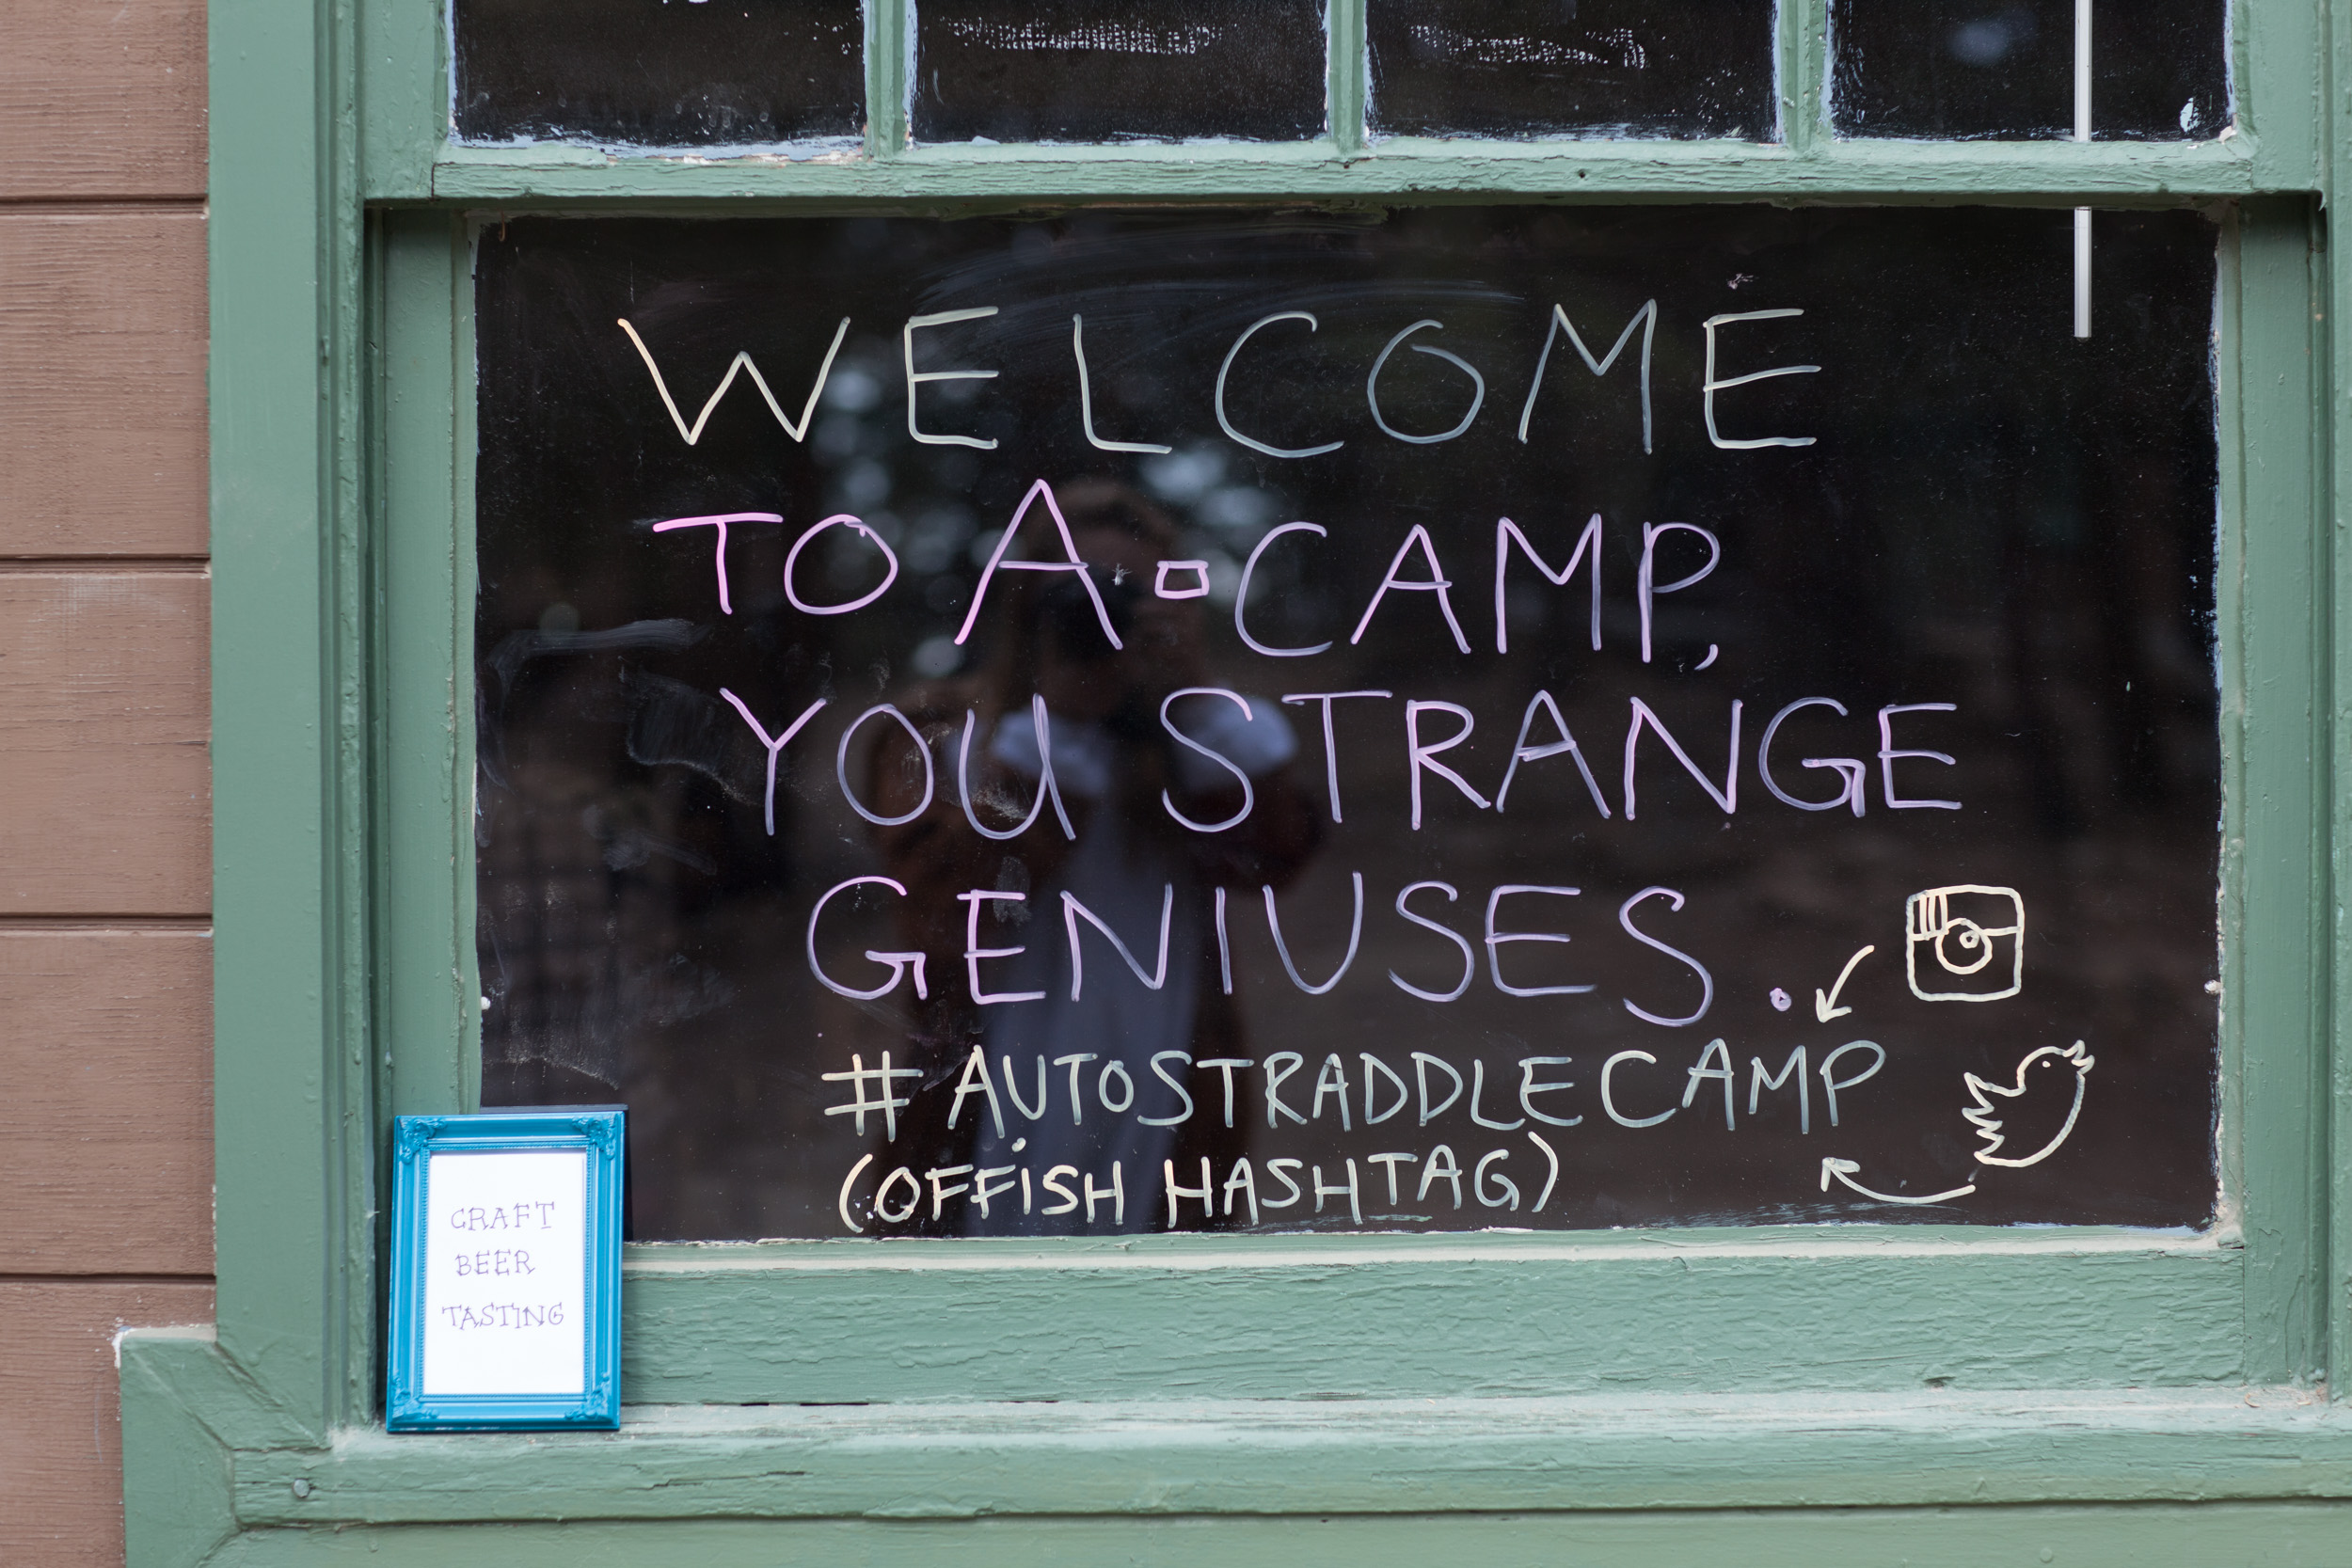 WELCOME
TO A-CAMP,
YOU STRANGE
GENIUSES.
#AUTOSTRADDLECAMP
(OFFISH HASHTAG)
CRAFT
BEER
TASTING